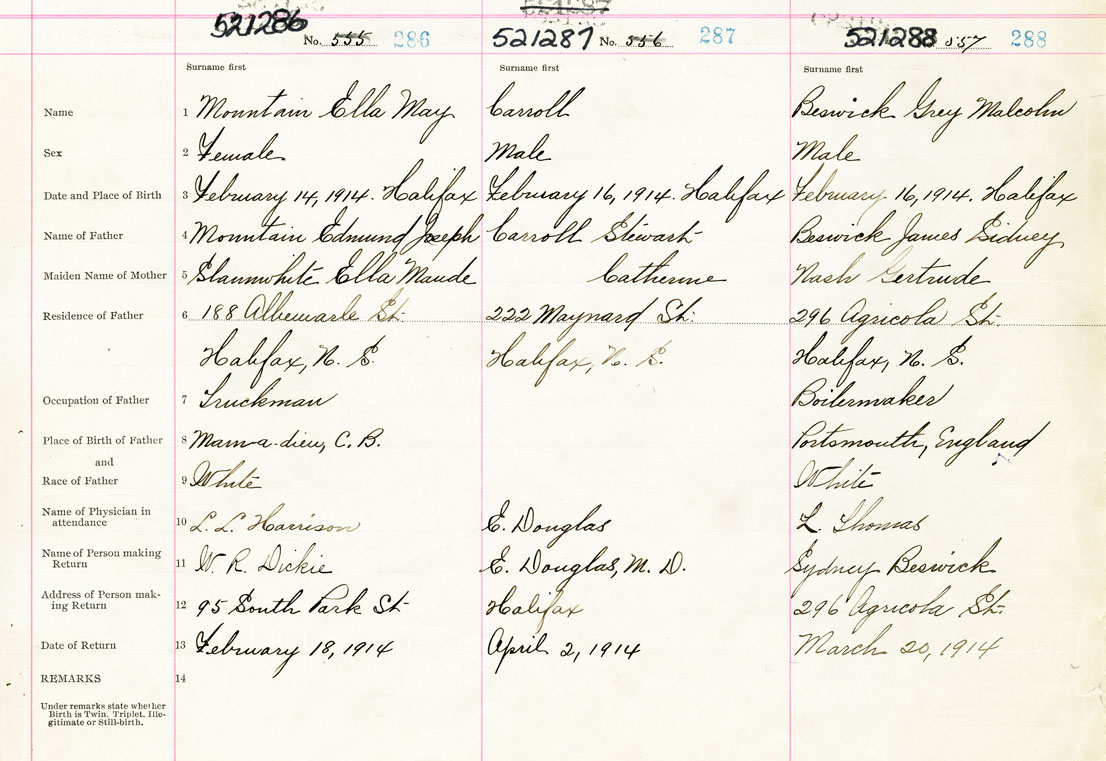 521286 No. 555 286 521287 No. 556 287 521288 557 288
Surname first Surname first Surname first
Name 1 Mountain Ella May Carroll Beswick Grey Malcolm
Sex 2 Female Male Male
Date and Place of Birth 3 February 14, 1914. Halifax February 16, 1914. Halifax February 16, 1914. Halifax
Name of Father 4 Mountain Edmund Joseph Carroll Stewart Beswick James Sidney
Maiden Name of Mother 5 Slaunwhite Ella Maude Catherine Nash Gertrude
Residence of Father 6 188 Albemarle St. 222 Maynard St. 296 Agricola St.
Halifax, N. S. Halifax, N. S. Halifax, N. S.
Occupation of Father 7 Truckman Boilermaker
Place of Birth of Father 8 Main-a-dieu, C. B. Portsmouth, England
and
Race of Father 9 White White
Name of Physician in
attendance 10 L. L. Harrison E. Douglas L. Thomas
Name of Person making
Return 11 W. R. Dickie E. Douglas, M. D. Sydney Beswick
Address of Person mak-
ing Return 12 95 South Park St. Halifax 296 Agricola St.
Date of Return 13 February 18, 1914 April 2, 1914 March 20, 1914
REMARKS 14
Under remarks state whether
Birth is Twin, Triplet, Ille-
gitimate or Still-birth.